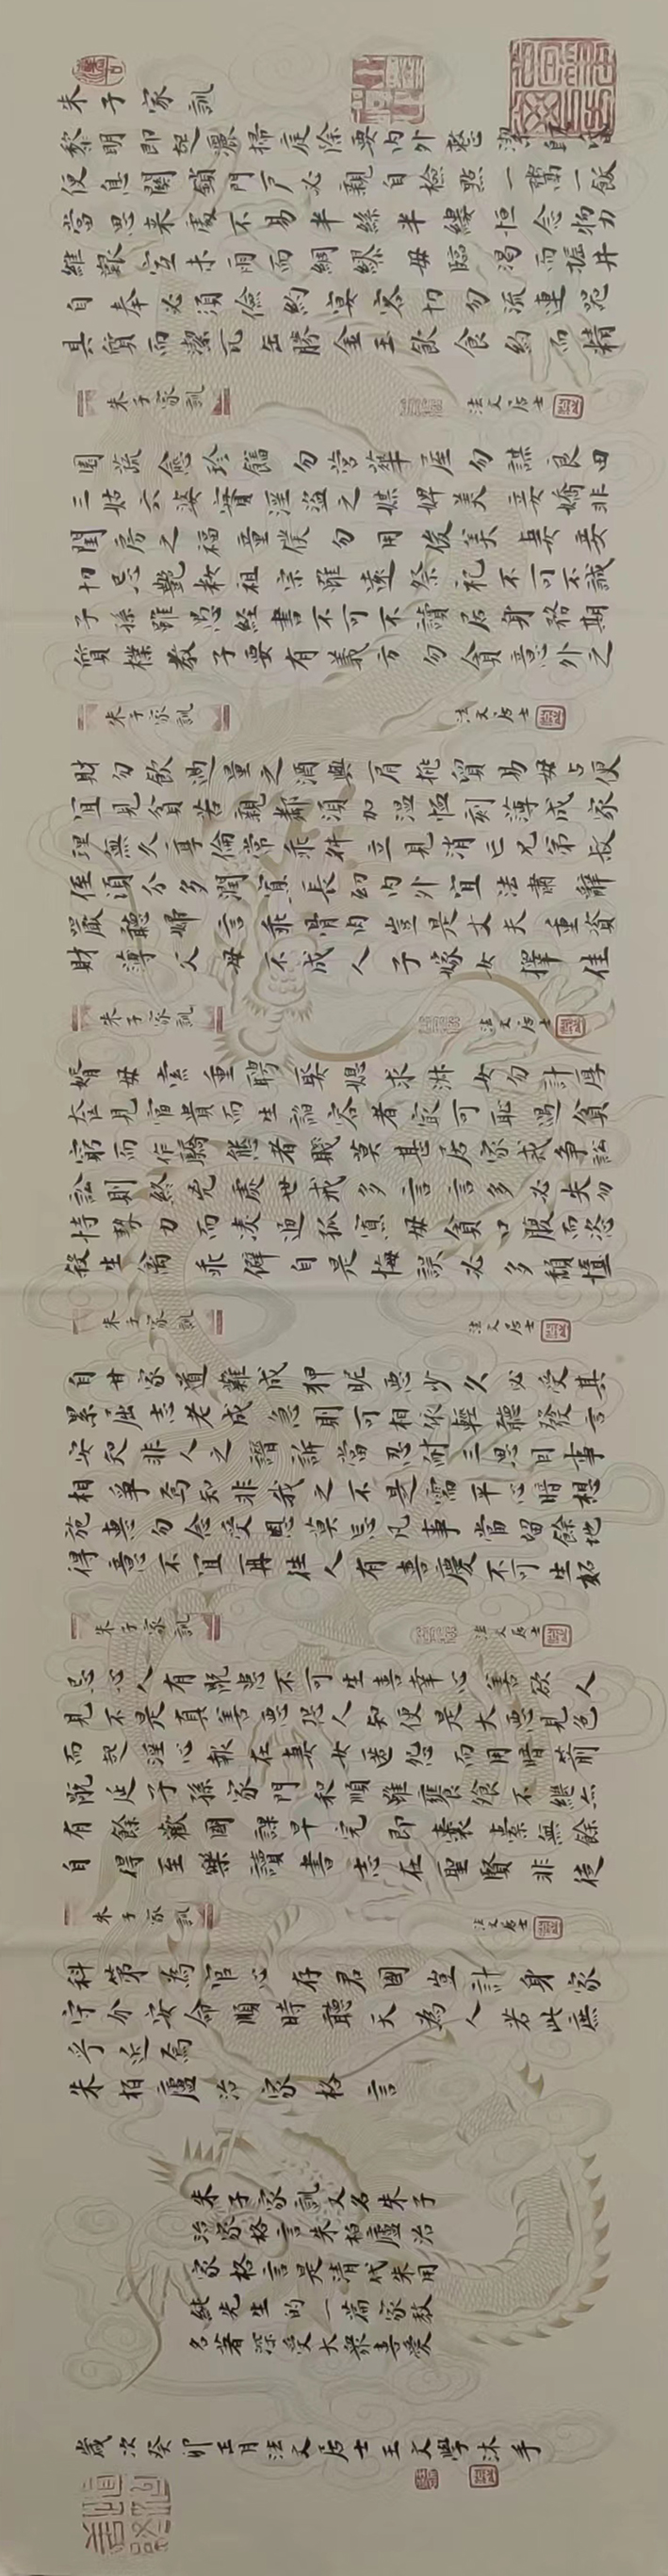 朱子家訓
黎明即起灑掃庭除要內外整潔既昏
便息關鎖門戶必親自檢點一粥一飯
當思来處不易半絲半縷恒念物力
維艱宜未雨而綢繆毋臨渴而掘井
自奉必須儉約宴客切勿流連器
具質而潔瓦缶勝金玉飲食約而精
朱子家訓 法文居士
園蔬愈珍饈勿營華屋勿謀良田
三姑六婆實淫盜之媒婢美妾嬌非
閨房之福童僕勿用俊美妻妾
切忌艷妝祖宗雖遠祭祀不可不誠
子孫雖愚經書不可不讀居身務期
質樸教子要有義方勿貪意外之
朱子家訓 法文居士
財勿飲過量之酒與肩挑貿易毋占便
宜見貧苦親鄰須加温恤刻薄成家
理無久享倫常乖舛立見消亡兄弟叔
侄須分多潤寡長幼內外宜法肅辭
嚴聽婦言乖骨肉豈是丈夫重資
財薄父母不成人子嫁女擇佳
朱子家訓 法文居士
婿毋索重聘娶媳求淑女勿計厚
奩見富貴而生諂容者最可恥遇貧
窮而作驕態者賤莫甚居家戒爭訟
訟則終凶處世戒多言言多必失勿
恃勢力而凌逼孤寡毋貪口腹而恣
殺生禽乖僻自是悔誤必多頹惰
朱子家訓 法文居士
自甘家道難成狎昵惡少久必受其
累屈志老成急則可相依輕聽發言
安知非人之譖訴當忍耐三思因事
相爭焉知非我之不是需平心暗想
施惠勿念受恩莫忘凡事當留餘地
得意不宜再往人有喜慶不可生妬
朱子家訓 法文居士
忌心人有禍患不可生喜幸心善欲人
見不是真善惡恐人知便是大惡見色
而起淫心報在妻女匿怨而用暗箭
禍延子孫家門和順雖饔飧不繼亦
有餘歡國課早完即囊橐無餘
自得至樂讀書志在聖賢非徒
朱子家訓 法文居士
科第為官心存君國豈計身家
守分安命順時聽天為人若此庶
乎近焉
朱柏廬治家格言
朱子家訓又名朱子
治家格言朱柏廬治
家格言是清代朱用
純先生的一篇家教
名著深受大衆喜愛
歲次癸卯正月法文居士王文學沐手